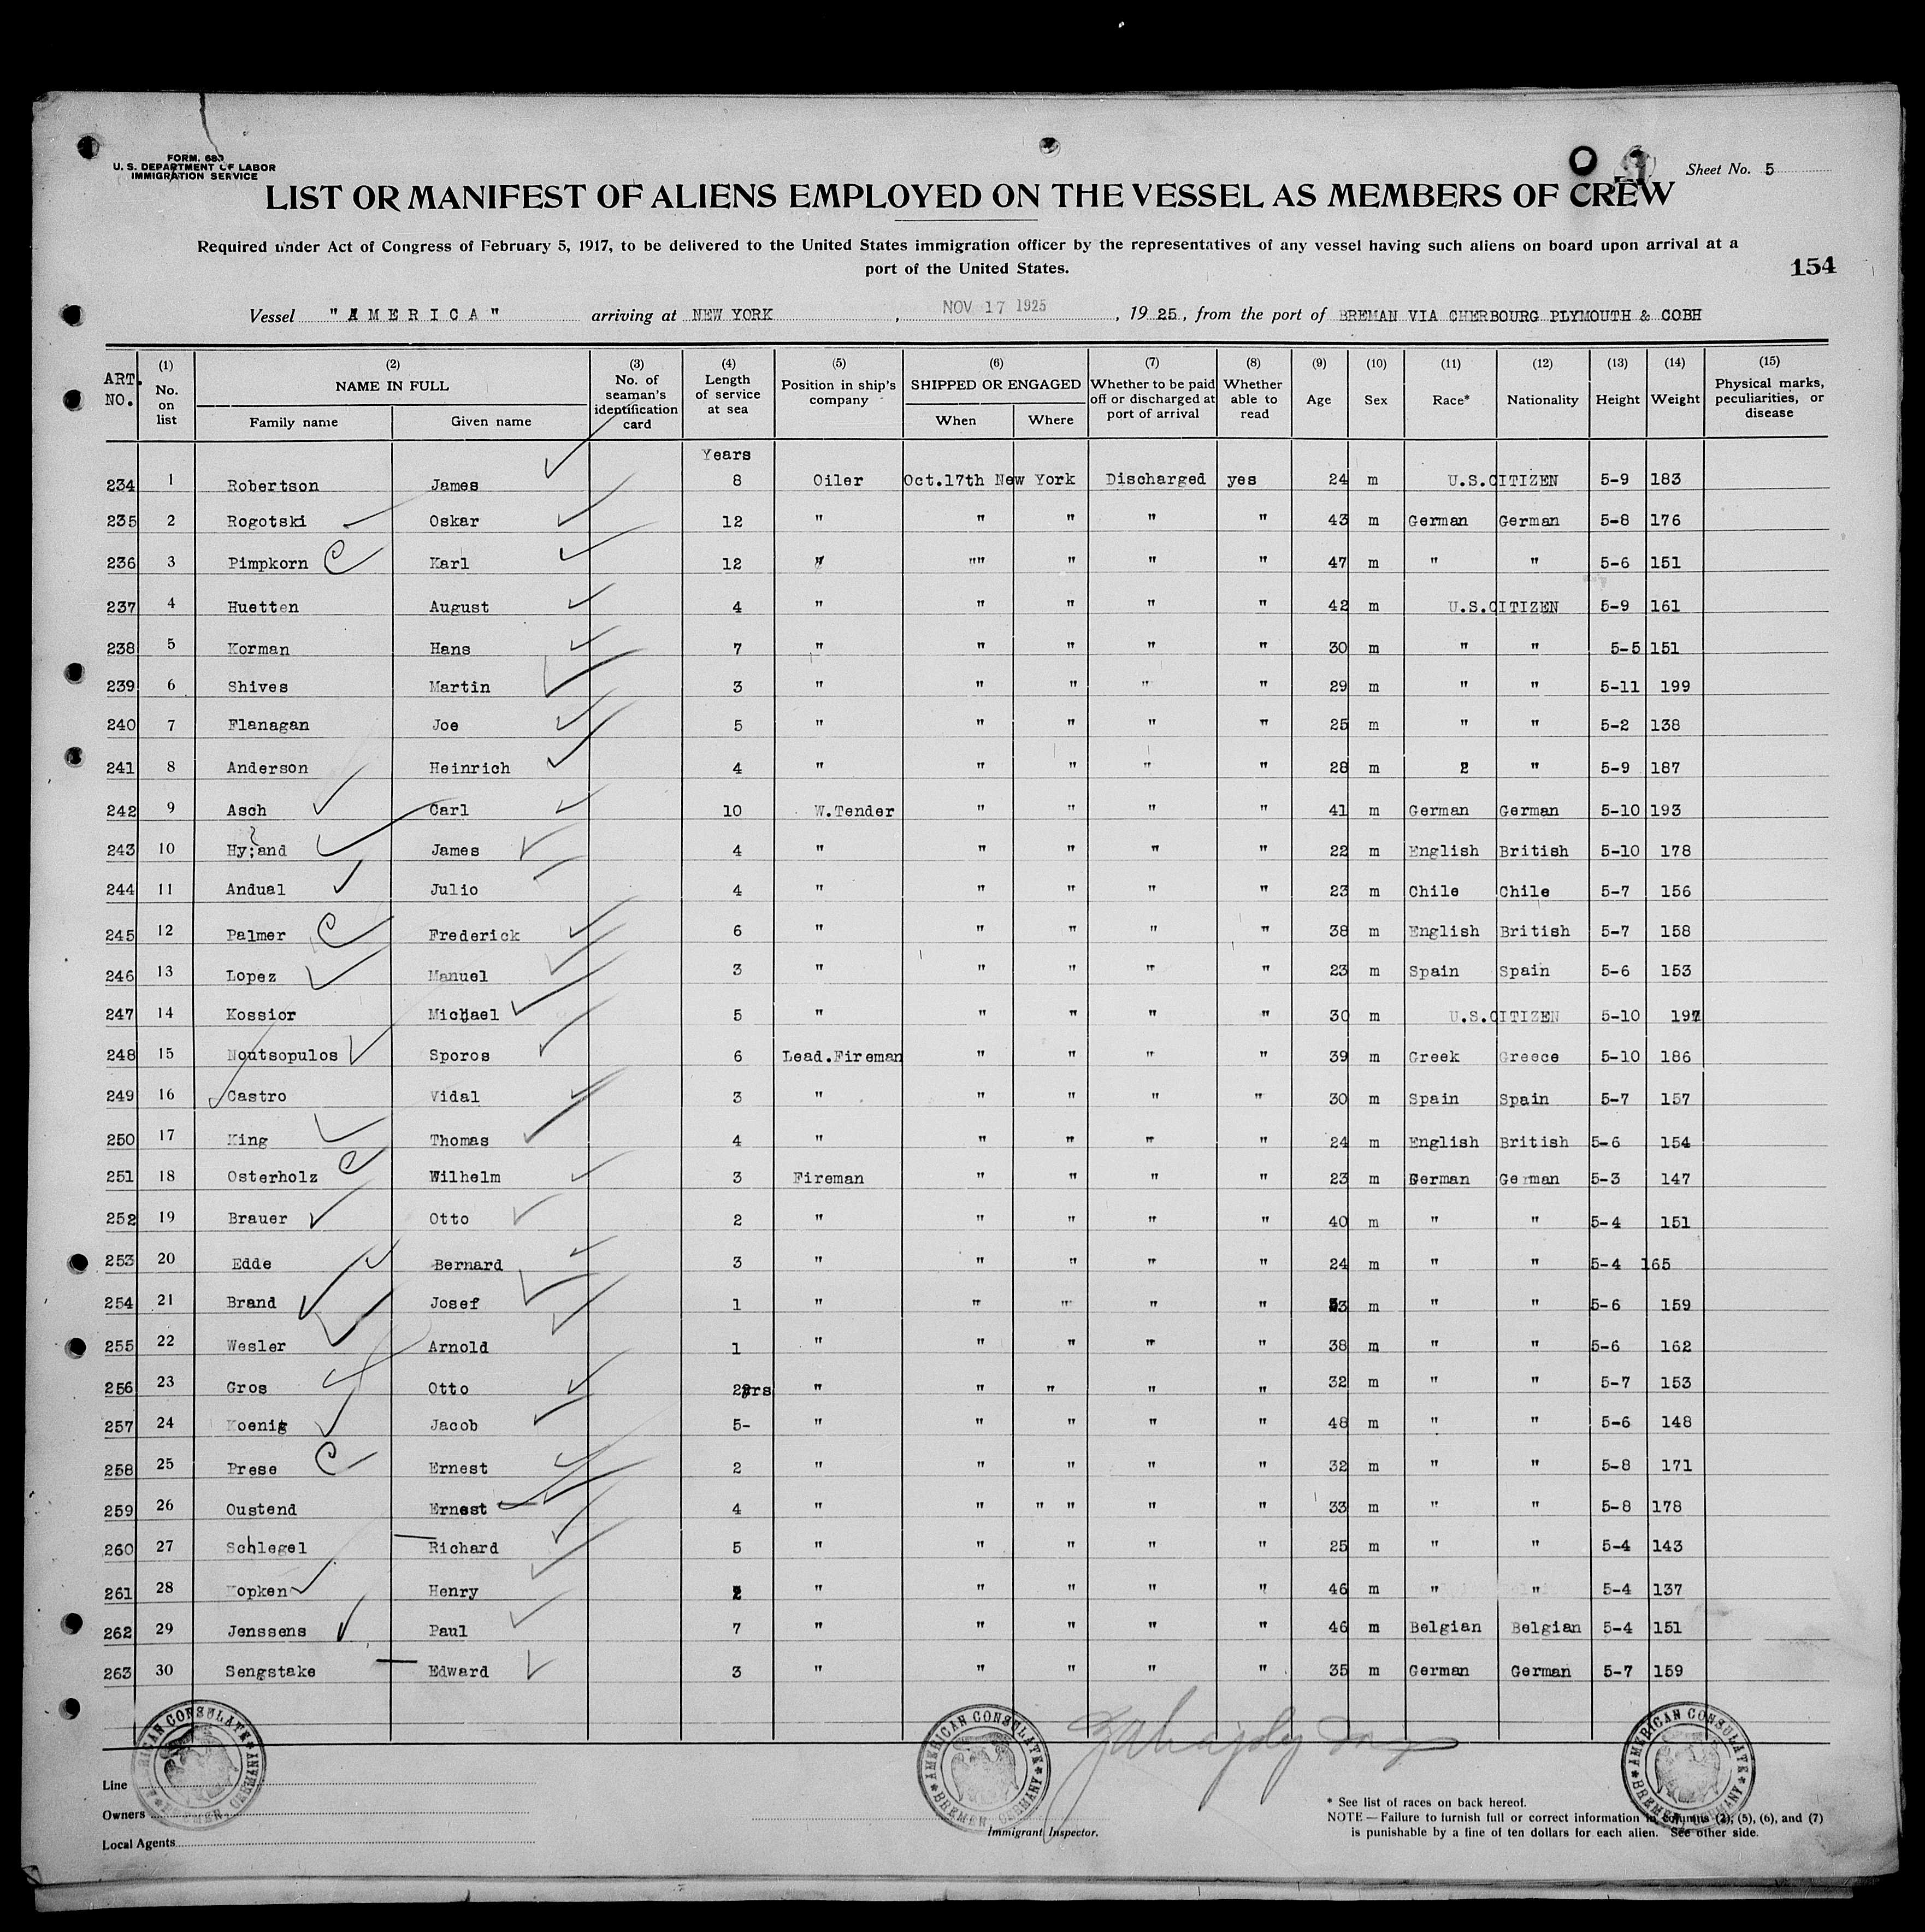 FORM. 680
U. S. DEPARTMENT OF LABOR
IMMIGRATION SERVICE
Sheet No. 5
LIST OR MANIFEST OF ALIENS EMPLOYED ON THE VESSEL AS MEMBERS OF CREW
Required under Act of Congress of February 5, 1917, to be delivered to the United States immigration officer by the representatives of any vessel having such aliens on board upon arrival at a
port of the United States.
154
Vessel "AMERICA" arriving at NEW YORK, NOV 17 1925, 1925, from the port of BREMAN VIA CHERBOURG PLYMOUTH & COBH
ART. NO. (1) No. on list (2) NAME IN FULL Family name Given name (3) No. of seaman's identification card (4) Length of service at sea (5) Position in ship's company (6) SHIPPED OR ENGAGED When Where (7) Whether to be paid off or discharged at port of arrival (8) Whether able to read (9) Age (10) Sex (11) Race* (12) Nationality (13) Height (14) Weight (15) Physical marks, peculiarities, or disease
Years
234 1 Robertson James 8 Oiler Oct.17th New York Discharged yes 24 m U.S.CITIZEN 5-9 183
235 2 Rogotski Oskar 12 " " " " " 43 m German German 5-8 176
236 3 Pimpkorn Karl 12 " "" " " " 47 m " " 5-6 151
237 4 Huetten August 4 " " " " " 42 m U.S.CITIZEN 5-9 161
238 5 Korman Hans 7 " " " " " 30 m " " 5-5 151
239 6 Shives Martin 3 " " " " " 29 m " " 5-11 199
240 7 Flanagan Joe 5 " " " " " 25 m " " 5-2 138
241 8 Anderson Heinrich 4 " " " " " 28 m 2 " 5-9 187
242 9 Asch Carl 10 W.Tender " " " " 41 m German German 5-10 193
243 10 Hy;and James 4 " " " " " 22 m English British 5-10 178
244 11 Andual Julio 4 " " " " " 23 m Chile Chile 5-7 156
245 12 Palmer Frederick 6 " " " " " 38 m English British 5-7 158
246 13 Lopez Manuel 3 " " " " " 23 m Spain Spain 5-6 153
247 14 Kossior Michael 5 " " " " " 30 m U.S.CITIZEN 5-10 197
248 15 Noutsopulos Sporos 6 Lead.Fireman " " " " 39 m Greek Greece 5-10 186
249 16 Castro Vidal 3 " " " " " 30 m Spain Spain 5-7 157
250 17 King Thomas 4 " " " " " 24 m English British 5-6 154
251 18 Osterholz Wilhelm 3 Fireman " " " " 23 m German German 5-3 147
252 19 Brauer Otto 2 " " " " " 40 m " " 5-4 151
253 20 Edde Bernard 3 " " " " " 24 m " " 5-4 165
254 21 Brand Josef 1 " " " " " m " " 5-6 159
255 22 Wesler Arnold 1 " " " " " 38 m " " 5-6 162
256 23 Gros Otto 2yrs " " " " " 32 m " " 5-7 153
257 24 Koenig Jacob 5- " " " " " 48 m " " 5-6 148
258 25 Prese Ernest 2 " " " " " 32 m " " 5-8 171
259 26 Oustend Ernest 4 " " " " " " 33 m " " 5-8 178
260 27 Schlegel Richard 5 " " " " " 25 m " " 5-4 143
261 28 Kopken Henry 2 " " " " " 46 m " " 5-4 137
262 29 Jenssens Paul 7 " " " " " 46 m Belgian Belgian 5-4 151
263 30 Sengstake Edward 3 " " " " " 35 m German German 5-7 159
AMERICAN CONSULATE BREMEN, GERMANY
AMERICAN CONSULATE BREMEN, GERMANY
AMERICAN CONSULATE BREMEN, GERMANY
Line
Owners
Local Agents
Immigrant Inspector.
* See list of races on back hereof.
NOTE — Failure to furnish full or correct information in columns (2), (5), (6), and (7)
is punishable by a fine of ten dollars for each alien. See other side.